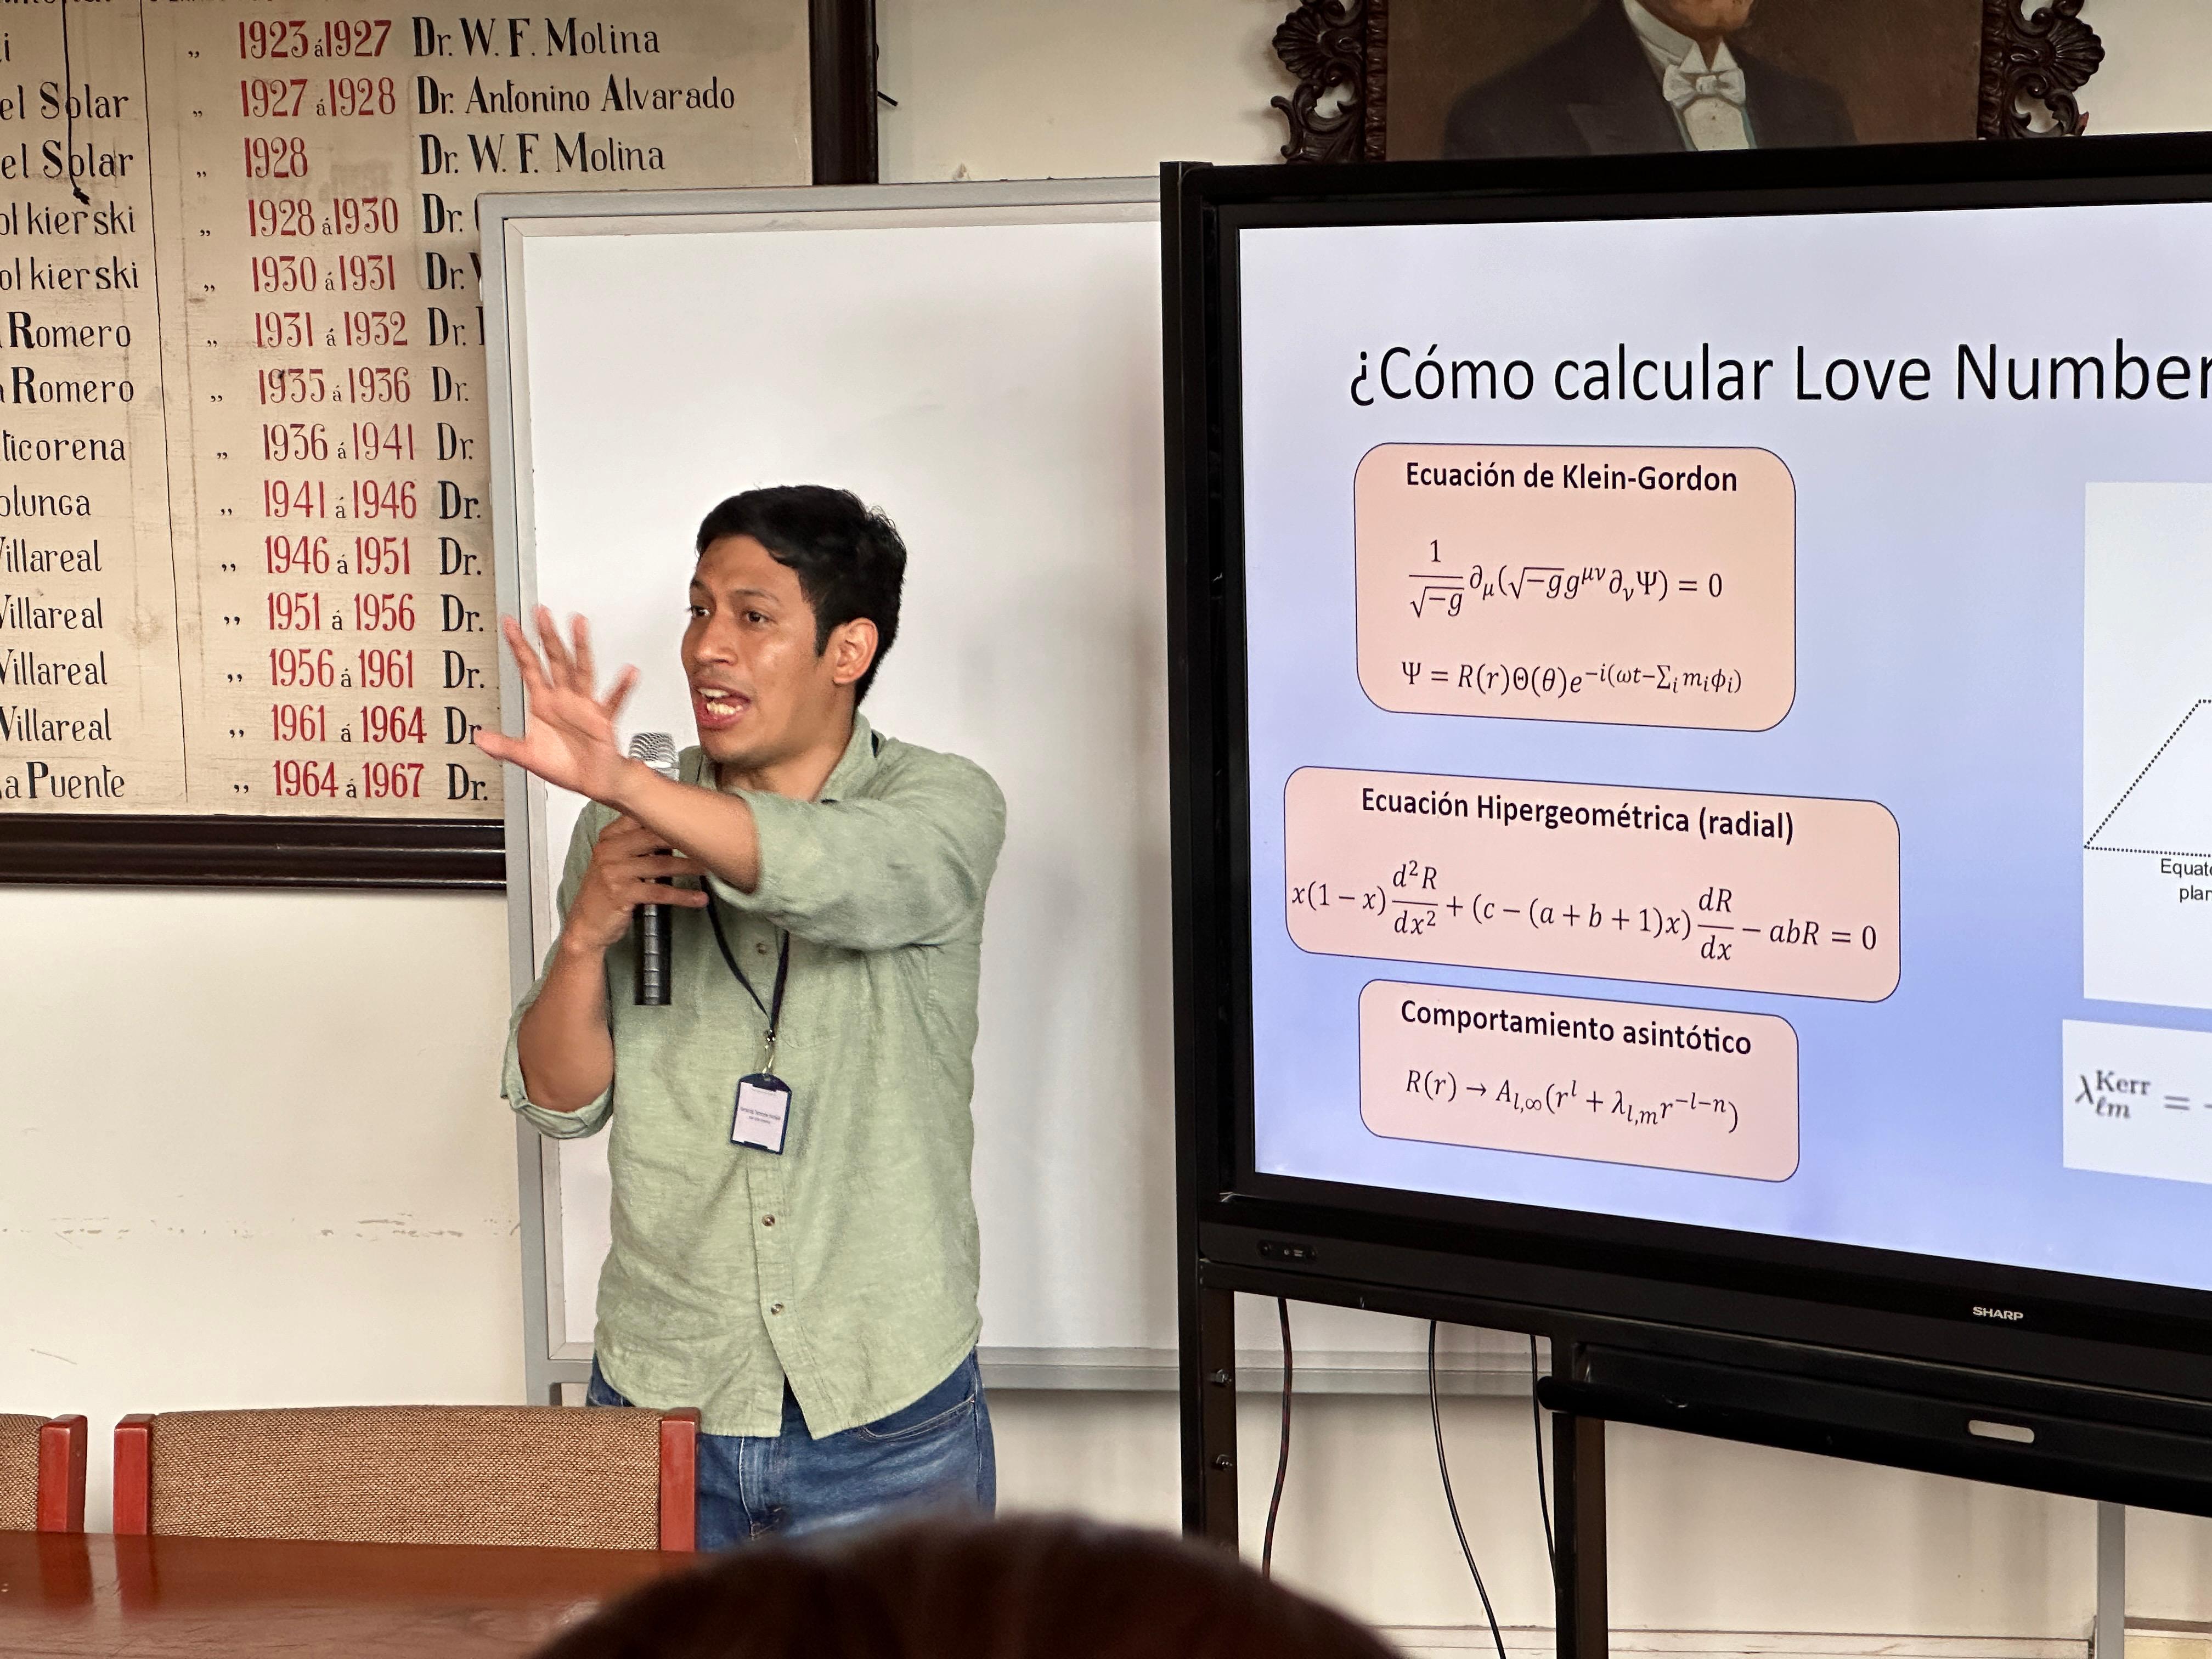 i „ 1923 á 1927 Dr. W. F. Molina
el Solar „ 1927 á 1928 Dr. Antonino Alvarado
el Solar „ 1928 Dr. W. F. Molina
olkierski „ 1928 á 1930 Dr.
olkierski „ 1930 á 1931 Dr.
Romero „ 1931 á 1932 Dr.
Romero „ 1935 á 1936 Dr.
ticorena „ 1936 á 1941 Dr.
olunga „ 1941 á 1946 Dr.
Villareal „ 1946 á 1951 Dr.
Villareal „ 1951 á 1956 Dr.
Villareal „ 1956 á 1961 Dr.
Villareal „ 1961 á 1964 Dr
a Puente „ 1964 á 1967 Dr.
¿Cómo calcular Love Number
Ecuación de Klein-Gordon
1/√−g ∂μ(√−g g^μν ∂νΨ) = 0
Ψ = R(r)Θ(θ)e^−i(ωt−∑i miϕi)
Ecuación Hipergeométrica (radial)
x(1 − x) d²R/dx² + (c − (a + b + 1)x) dR/dx − abR = 0
Comportamiento asintótico
R(r) → A_l,∞(r^l + λ_l,m r^−l−n)
Equat
plan
λ^Kerr_ℓm = -
SHARP